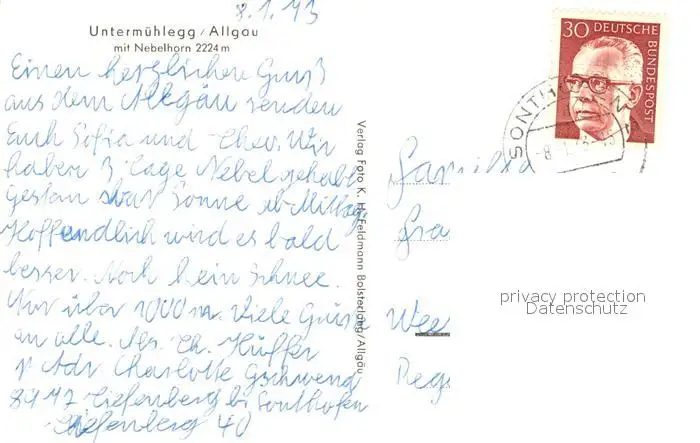 8.1.73
Untermühlegg / Allgau
mit Nebelhorn 2224 m
Einen herzlichen Gruß
aus dem Allgäu senden
Euch Sofia und Chev. Wir
haben 3 Tage Nebel gehabt
Gestern Sonne ab Mittag
Hoffendlich wird es bald
besser. Noch kein Schnee.
Nur über 1000 m. Viele Grüße
an alle. Ch. Hüffer
Adr Charlotte Gschwend
8972 Tiefenberg bei Sonthofen
Tiefenberg 40
Verlag Foto K. H. Feldmann Bolsterlang/Allgäu
30 DEUTSCHE
BUNDESPOST
SONTH
Famili
Fra
Wee
Reg
privacy protection
Datenschutz